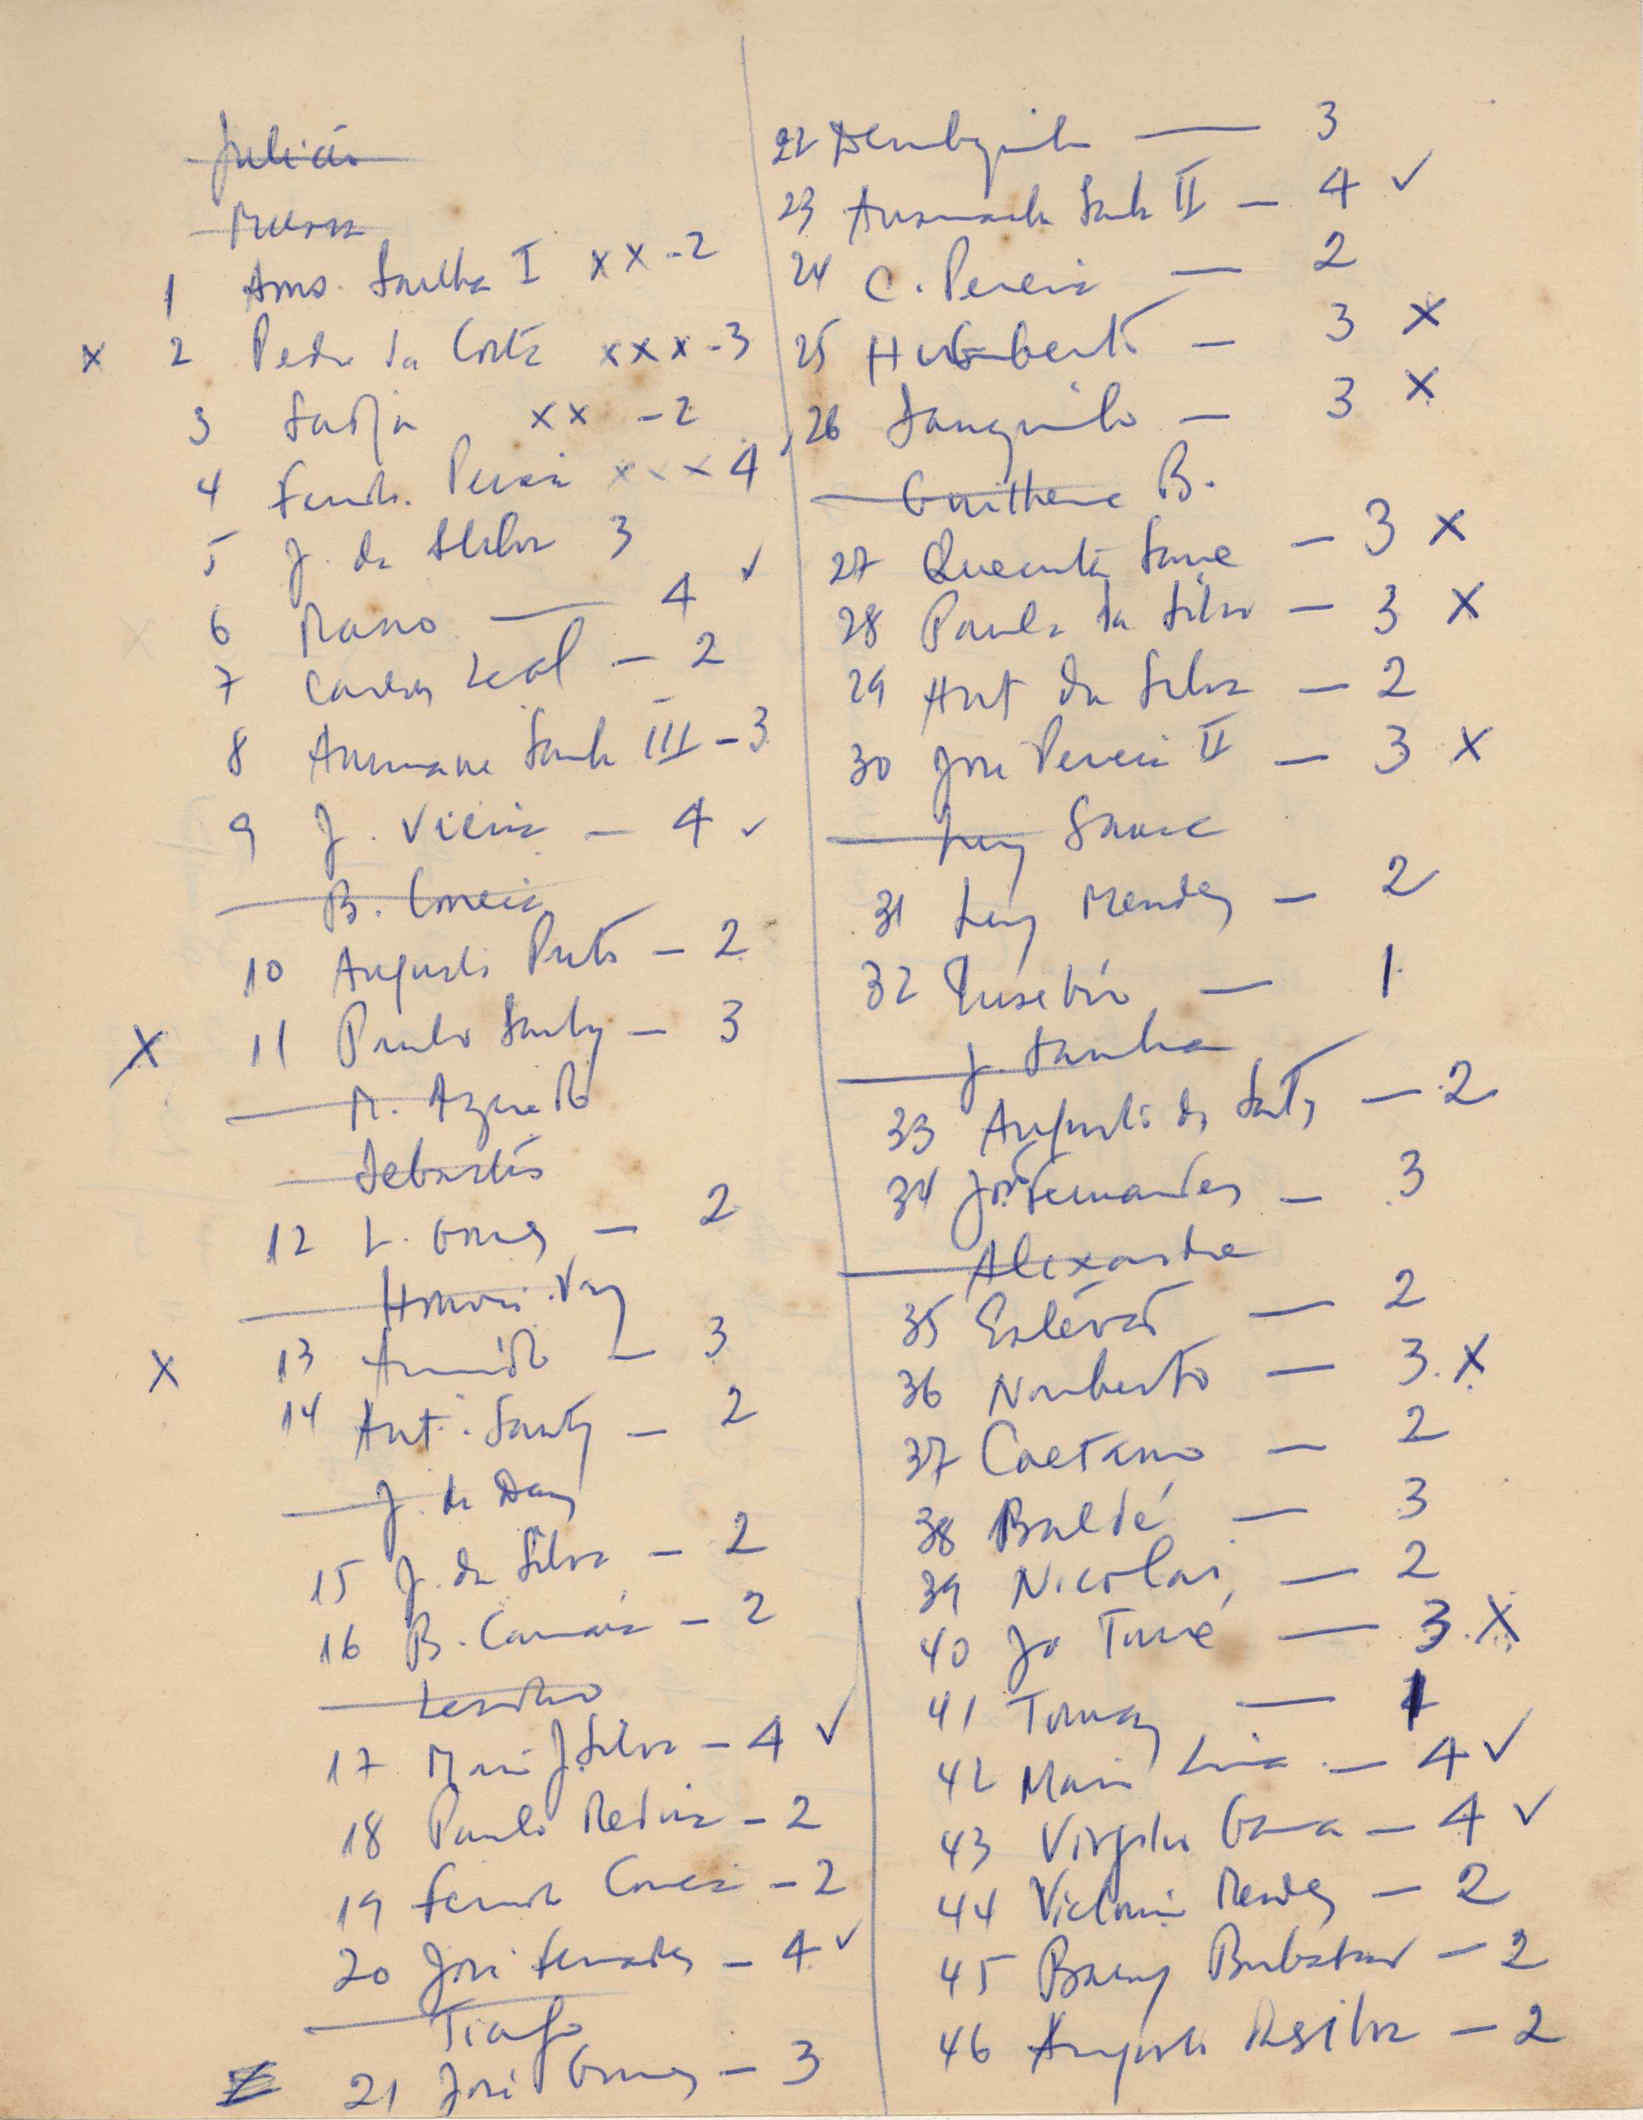 Julião
1 Ans. Samba I xx - 2
x 2 Pedro da Costa xxx - 3
3 xx - 2
4 Fernd. Pereira xxx 4
5 J. da Silva 3
6 4 ✓
7 Carlos Leal - 2
8 Ansumane III - 3
9 J. Vieira - 4 ✓
B. Correia
10 Augusto Preto - 2
x 11 Paulo Santos - 3
M. Azevedo
Sebastião
12 L. Gomes - 2
Honório Vaz
x 13 Armindo - 3
14 Ant. Santos - 2
J. de Deus
15 J. da Silva - 2
16 B. Camará - 2
17 Maria J. Silva - 4 ✓
18 Paulo - 2
19 Fernando Correia - 2
20 José Fernandes - 4 ✓
Tiago
21 José Gomes - 3
22 - 3
23 Ansumane II - 4 ✓
24 C. Pereira - 2
25 Humberto - 3 x
26 - 3 x
Guilherme B.
27 Quecuta Sane - 3 x
28 Paulo da Silva - 3 x
29 Ant da Silva - 2
30 José Pereira II - 3 x
Luiz Sanca
31 Luiz Mendes - 2
32 Eusébio - 1
J. Samba
33 Augusto dos Santos - 2
34 José Fernandes - 3
Alexandre
35 Estêvão - 2
36 Norberto - 3 x
37 Caetano - 2
38 Baldé - 3
39 Nicolau - 2
40 Jo Tomé - 3 x
41 Tomaz - 1
42 Maria - 4 ✓
43 Virgílio Gama - 4 ✓
44 Victorino Mendes - 2
45 Bubakar - 2
46 Augusto Dasilva - 2